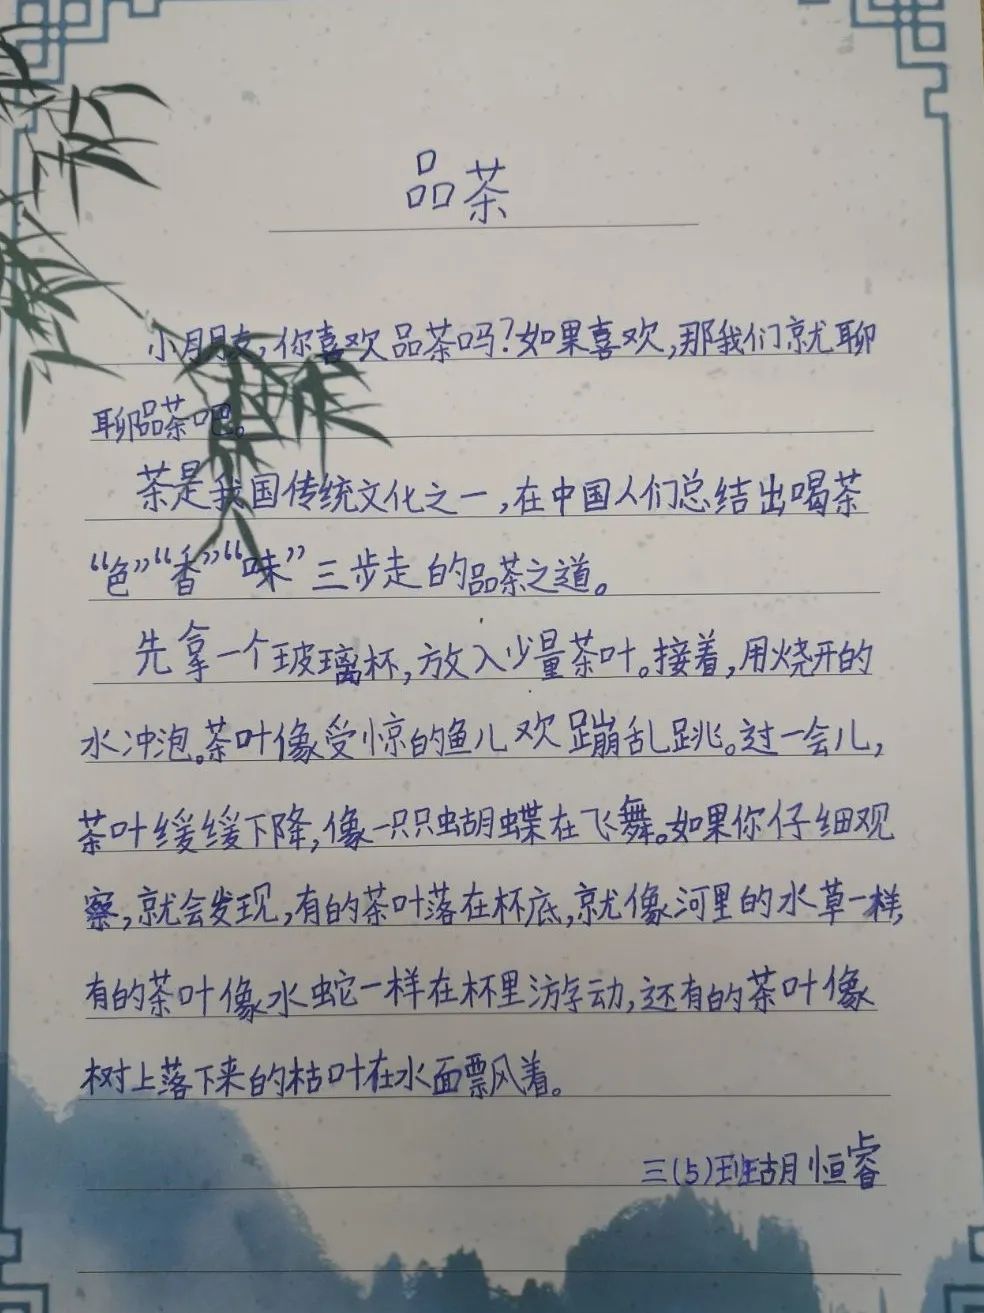 品茶
小朋友,你喜欢品茶吗?如果喜欢,那我们就聊
聊品茶吧。
茶是我国传统文化之一,在中国人们总结出喝茶
“色”“香”“味”三步走的品茶之道。
先拿一个玻璃杯,放入少量茶叶。接着,用烧开的
水冲泡。茶叶像受惊的鱼儿欢蹦乱跳。过一会儿,
茶叶缓缓下降,像一只只蝴蝶在飞舞。如果你仔细观
察,就会发现,有的茶叶落在杯底,就像河里的水草一样,
有的茶叶像水蛇一样在杯里游动,还有的茶叶像
树上落下来的枯叶在水面飘着。
三(5)班胡恒睿